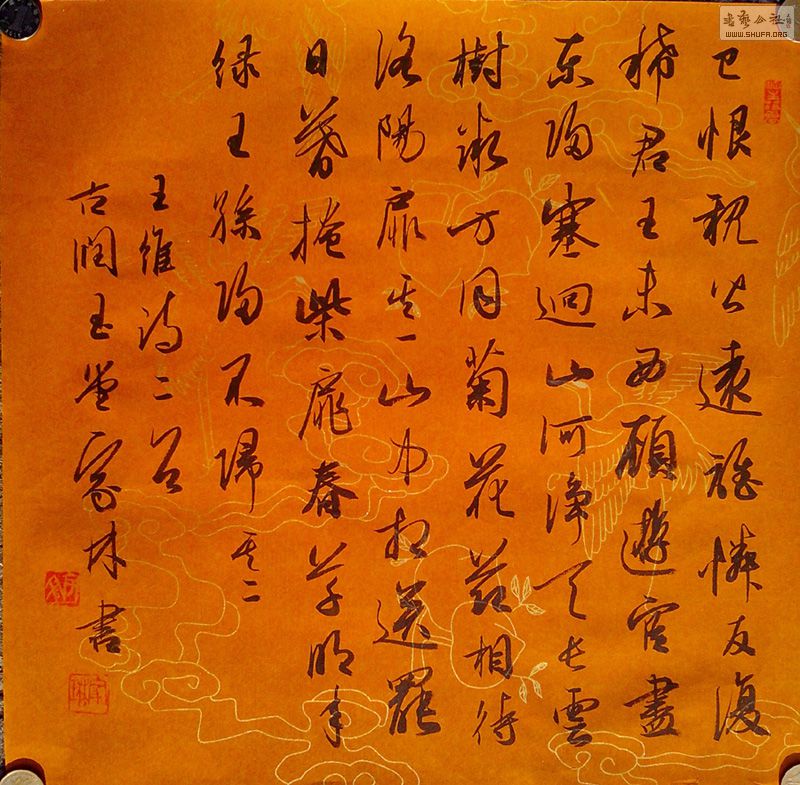 已恨親皆遠誰憐友復
稀君王未西顧遊宦盡
東歸塞迴山河淨天長雲
樹微方同菊花節相待
洛陽扉其一山中相送罷
日暮掩柴扉春草明年
绿王孫歸不歸其二
王維诗二首
古潤玉堂家林書
書藝公社
WWW.SHUFA.ORG